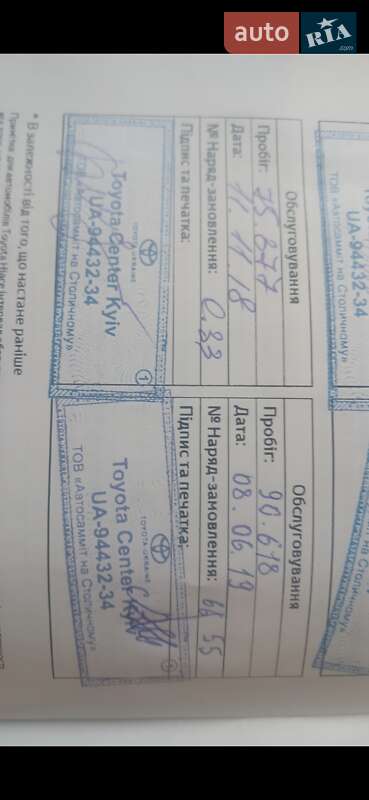 auto RIA.com
Обслуговування
Пробіг: 75.877
Дата: 11.11.18
№ Наряд-замовлення: 0.33
Підпис та печатка:
TOYOTA UKRAINE
Toyota Center Kyiv
UA-94432-34
ТОВ «Автосамміт на Столичному»
1
Обслуговування
Пробіг: 90.618
Дата: 08.06.19
№ Наряд-замовлення: 6655
Підпис та печатка:
TOYOTA UKRAINE
Toyota Center Kyiv
UA-94432-34
ТОВ «Автосамміт на Столичному»
* В залежності від того, що настане раніше
Примітка: для автомобілів Toyota Hiace
Kyiv
UA-94432-34
ТОВ «Автосамміт на Столичному»